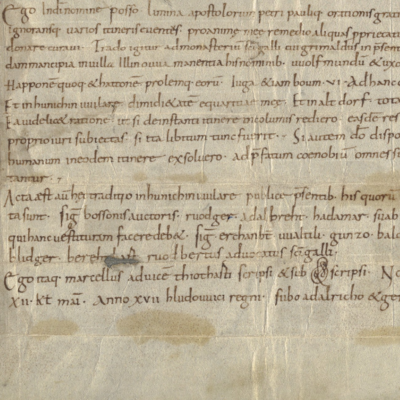 Ego In dei nomine posso limina apostolorum petri pauliq; orationis gratia
Ignoransq; varios itineris euentus pro anime mee remedio aliquas p prietat
donare curaui. Trado igitur ad monasterium sci galli cui grimaldus in psent
dammancipia in uilla Illinouua manentia his nominib. uuolf mundu & uxo
Happonem quoq; & hattonem prolemq; eoru. Iuga & iam boum. VI. Ad hanc
Et in hunichinuuilare dimidi&ate equaritiae meae. Et in alt dorf. tota
Ea uidelic& ratione. ut si de instanti itinere incolumis rediero. eaedē res
proprio iuri subiectas. si ita libitum tunc fuerit. Si autem dō dispo
humanum in eodem itinere exsoluero. ad p̄fatum coenobium omnes su
tantur.
Acta est aū hec traditio in hunichinuuilare publice psentib. his quorū
ta sunt. Sig bossonis auctoris. ruodger. adalbreht. hadamar. suab
qui hanc uestituram facere deb&. Sig erchanbt. uualtili. gunzo. bald
blidger. ruolbertus aduocatus sc̄i galli.
Ego itaq; marcellus aduicē thiothasti scripsi & sub scripsi. No
XII. kł mai. Anno XVII hludouuici regni. sub adalricho & ge